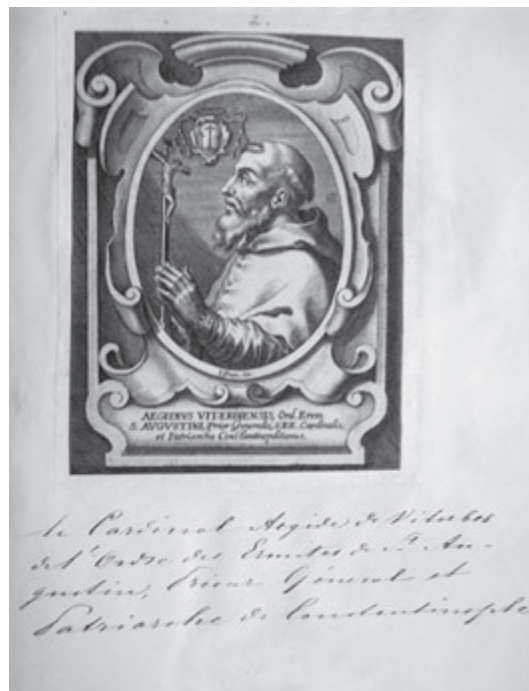 2.
AEGIDIVS VITERBIENSIS, Ord. Erem.
S. AVGVSTINI, Prior Generalis, S.R.E. Cardinalis,
et Patriarcha Constantinopolitanus.
le Cardinal Aegide de Viterbes
de l'Ordre des Ermites de St. Au-
gustin, Prieur Géneral et
Patriarche de Constantinople